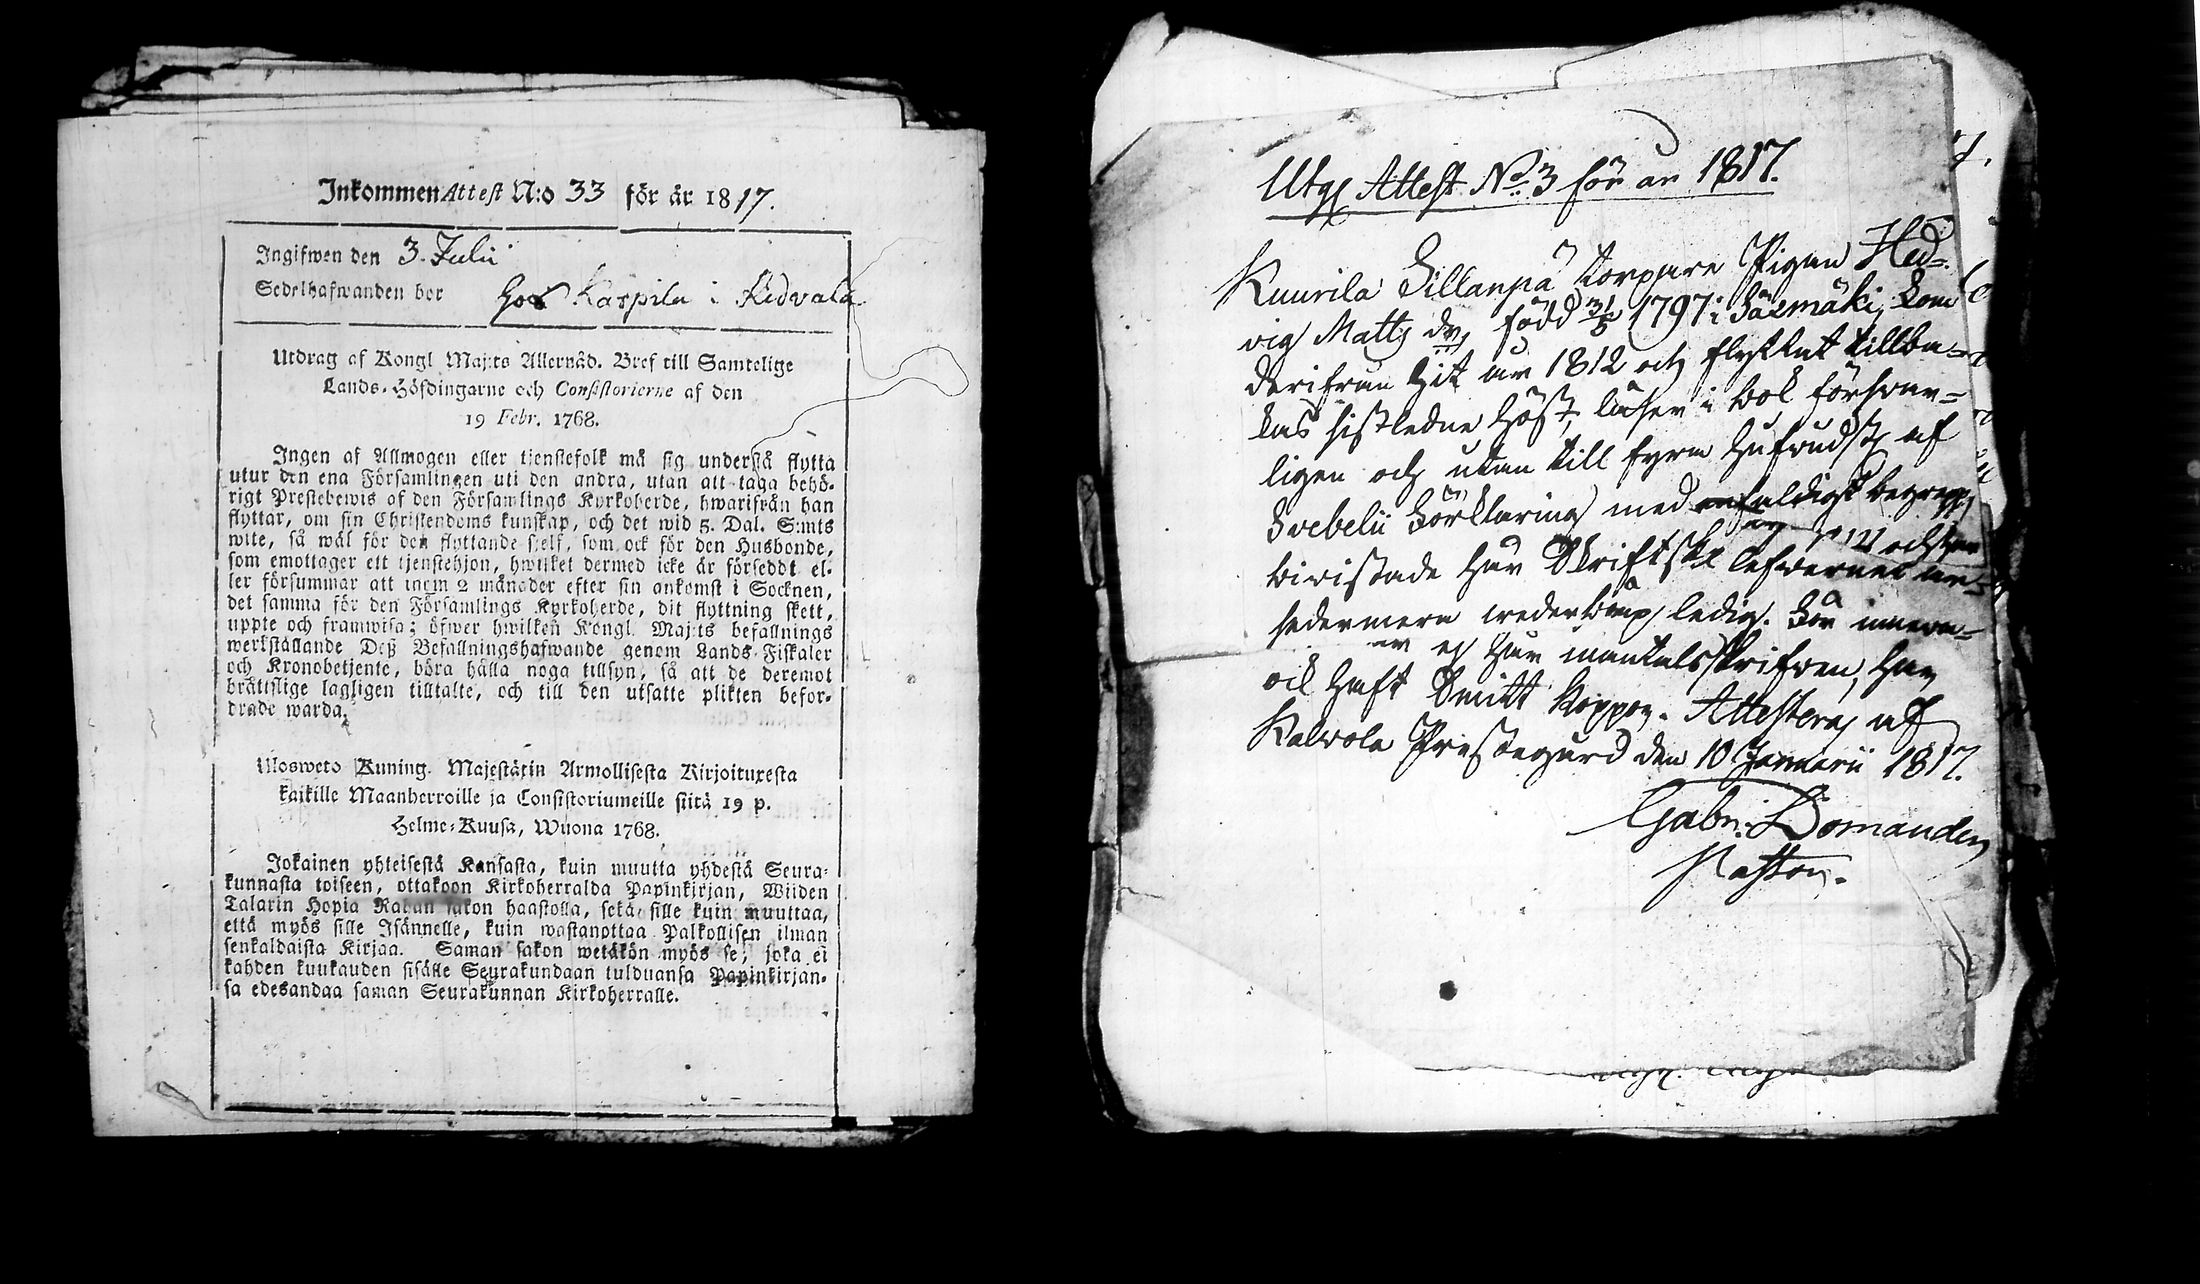 Inkommen Attest N:o 33 för år 1817.
Ingifwen den 3. Julii
Sedelhafwanden bor hos Karpila i Ridvala
Utdrag af Kongl Maj:ts Allernåd. Bref till Samtelige
Lands-Höfdingarne och Consistorierne af den
19 Febr. 1768.
Ingen af Allmogen eller tjenstefolk må sig understå flytta
utur den ena Församlingen uti den andra, utan att taga behö-
rigt Prestebewis af den Församlings Kyrkoherde, hwarifrån han
flyttar, om sin Christendoms kunskap, och det wid 5. Dal. S:mts
wite, så wäl för den flyttande sjelf, som ock för den Husbonde,
som emottager ett tjenstehjon, hwilket dermed icke är försedt el-
ler försummar att inom 2 månader efter sin ankomst i Socknen,
det samma för den Församlings Kyrkoherde, dit flyttning skett,
uppte och framwisa; öfwer hwilken Kongl. Maj:ts befallnings
werkställande Deß Befallningshafwande genom Lands Fiskaler
och Kronobetjente, böra hålla noga tillsyn, så att de deremot
bråttslige lagligen tilltalte, och till den utsatte plikten befor-
drade warda.
Ulosweto Kuning. Majestätin Armollisesta Kirjoituxesta
kaikille Maanherroille ja Consistoriumeille siitä 19 p.
Helme-Kuusa, Wuona 1768.
Jokainen yhteisestä Kansasta, kuin muutta yhdestä Seura-
kunnasta toiseen, ottakoon Kirkoherralda Papinkirjan, Wiiden
Talarin Hopia Rahan sakon haastolla, sekä sille kuin muuttaa,
että myös sille Isännelle, kuin wastanottaa Palkollisen ilman
senkaldaista Kirjaa. Saman sakon wetäkön myös se, joka ei
kahden kuukauden sisälle Seurakundaan tulduansa Papinkirjan-
sa edesandaa saman Seurakunnan Kirkoherralle.
Utg. Attest No. 3 för år 1817.
Kuurila Sillanpä torpare Pigan Hed-
vig Matts dr, född 31/5 1797 i Säxmäki, kom
derifrån hit år 1812 och flyttat tillba-
kas sistledne höst, läser i bok förswar-
ligen och utan till fyra hufvudst af
Svebelii förklaring med enfaldigt begrepp,
biwistade har Skriftskl lefwernet
sedermera wederbörl ledig. För
er ej här mantalsskrifwen, har
ock haft Smitt koppor. Attesteras af
Kalvola Prestegård den 10 Januarii 1817.
Gabr. Bomanden
Pastor.